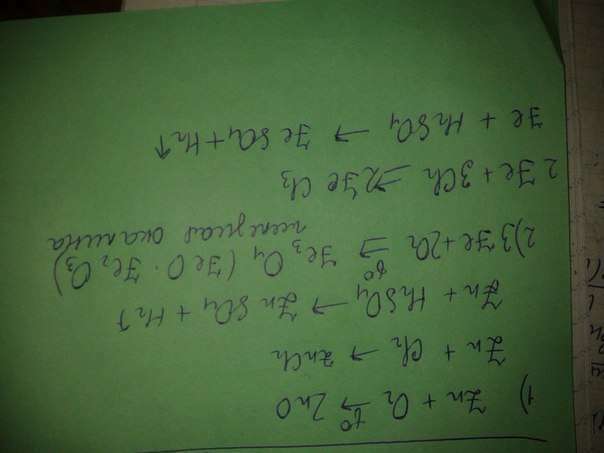 1) Zn + O₂ t°→ ZnO
Zn + Cl₂ → ZnCl₂
Zn + H₂SO₄ → ZnSO₄ + H₂↑
2) 3Fe + 2O₂ t°→ Fe₃O₄ (FeO · Fe₂O₃)
железная окалина
2Fe + 3Cl₂ → 2FeCl₃
Fe + H₂SO₄ → FeSO₄ + H₂↑